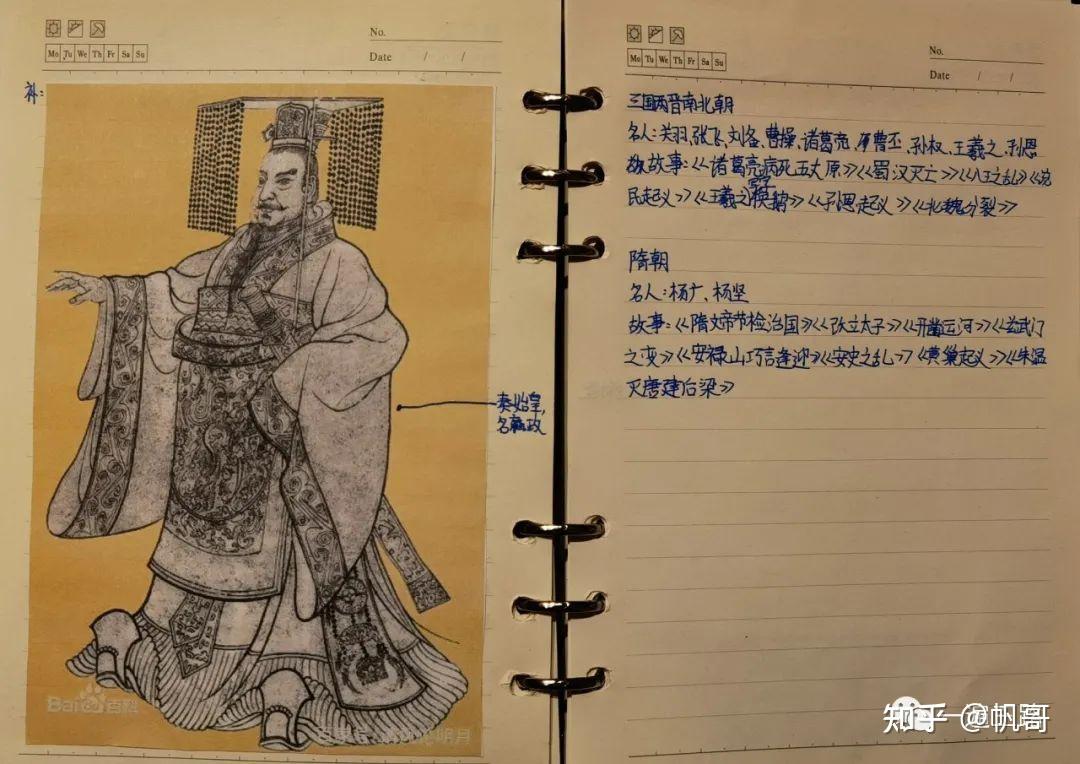 No.
Date / /
Mo Tu We Th Fr Sa Su
补:
秦始皇,
名嬴政
Baidu百科
No.
Date / /
Mo Tu We Th Fr Sa Su
三国两晋南北朝
名人:关羽,张飞,刘备,曹操,诸葛亮,曹丕,孙权,王羲之,孙恩
故事:《诸葛亮病死五大原》《蜀汉灭亡》《八王之乱》《流
民起义》《王羲之写字换鹅》《孙恩起义》《北魏分裂》
隋朝
名人:杨广、杨坚
故事:《隋文帝节检治国》《改立太子》《开凿运河》《玄武门
之变》《安禄山巧言逢迎》《安史之乱》《黄巢起义》《朱温
灭唐建后梁》
知乎 @帆哥